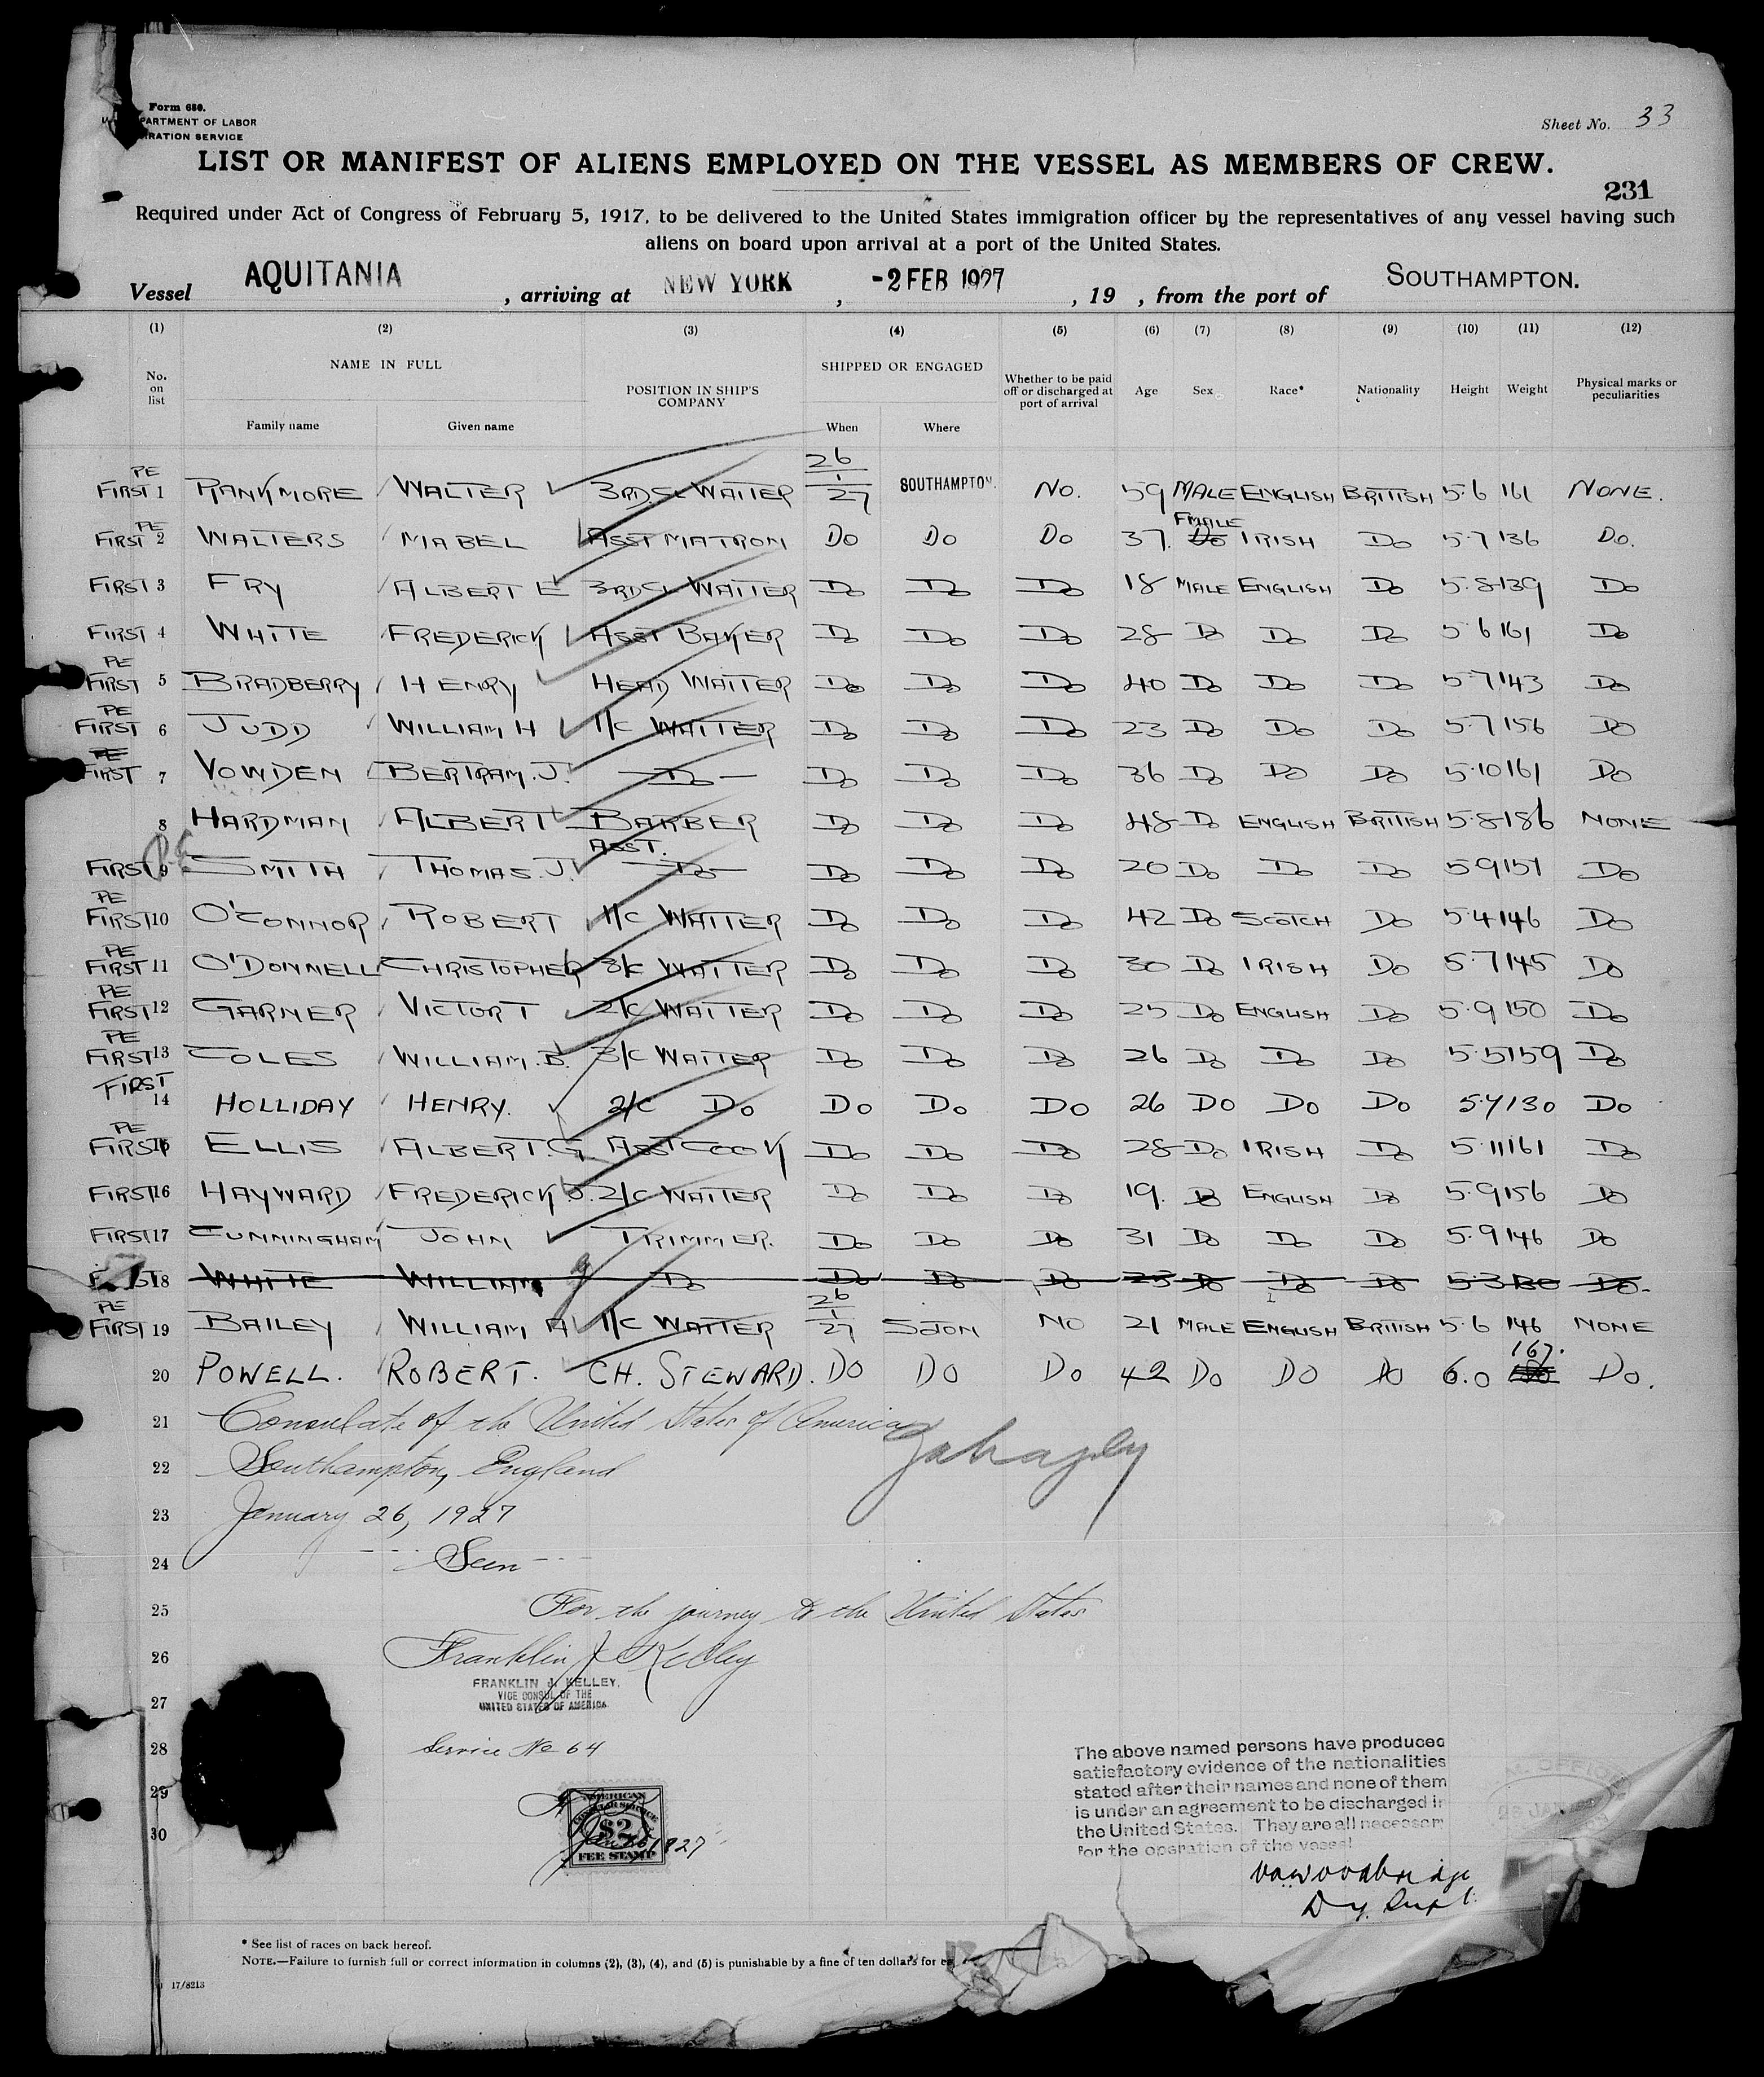 Form 680.
PARTMENT OF LABOR
IRATION SERVICE
Sheet No. 33
LIST OR MANIFEST OF ALIENS EMPLOYED ON THE VESSEL AS MEMBERS OF CREW.
231
Required under Act of Congress of February 5, 1917, to be delivered to the United States immigration officer by the representatives of any vessel having such
aliens on board upon arrival at a port of the United States.
Vessel AQUITANIA, arriving at NEW YORK, -2 FEB 1927, 19 , from the port of SOUTHAMPTON.
(1) (2) (3) (4) (5) (6) (7) (8) (9) (10) (11) (12)
No. on list NAME IN FULL Family name Given name POSITION IN SHIP'S COMPANY SHIPPED OR ENGAGED When Where Whether to be paid off or discharged at port of arrival Age Sex Race* Nationality Height Weight Physical marks or peculiarities
PE FIRST 1 RANKMORE WALTER 3RD CL WAITER 26/1/27 SOUTHAMPTON. NO. 59 MALE ENGLISH BRITISH 5.6 161 NONE.
PE FIRST 2 WALTERS MABEL ASST MATRON DO DO DO 37. FMALE DO IRISH DO 5.7 136 DO.
FIRST 3 FRY ALBERT E 3RD CL WAITER DO DO DO 18 MALE ENGLISH DO 5.8 139 DO
FIRST 4 WHITE FREDERICK ASST BAKER DO DO DO 28 DO DO DO 5.6 161 DO
PE FIRST 5 BRADBERRY HENRY HEAD WAITER DO DO DO 40 DO DO DO 5.7 143 DO
PE FIRST 6 JUDD WILLIAM H 1/C WAITER DO DO DO 23 DO DO DO 5.7 156 DO
PE FIRST 7 VOWDEN BERTRAM. J. DO DO DO DO 36 DO DO DO 5.10 161 DO
8 HARDMAN ALBERT BARBER DO DO DO 48 DO ENGLISH BRITISH 5.8 186 NONE
PE FIRST 9 SMITH THOMAS. J. ASST. DO DO DO DO 20 DO DO DO 5.9 151 DO
PE FIRST 10 O'CONNOR ROBERT 1/C WAITER DO DO DO 42 DO SCOTCH DO 5.4 146 DO
PE FIRST 11 O'DONNELL CHRISTOPHER 3/C WAITER DO DO DO 30 DO IRISH DO 5.7 145 DO
PE FIRST 12 GARNER VICTOR T 2/C WAITER DO DO DO 25 DO ENGLISH DO 5.9 150 DO
PE FIRST 13 COLES WILLIAM. B. 3/C WAITER DO DO DO 26 DO DO DO 5.5 159 DO
FIRST 14 HOLLIDAY HENRY. 2/C DO DO DO DO 26 DO DO DO 5.7 130 DO
PE FIRST 15 ELLIS ALBERT. G. ASST COOK DO DO DO 28 DO IRISH DO 5.11 161 DO
FIRST 16 HAYWARD FREDERICK J. 2/C WAITER DO DO DO 19. DO ENGLISH DO 5.9 156 DO
FIRST 17 CUNNINGHAM JOHN TRIMMER. DO DO DO 31 DO DO DO 5.9 146 DO
FIRST 18 WHITE WILLIAM DO DO DO DO 23 DO DO DO 5.3 130 DO.
PE FIRST 19 BAILEY WILLIAM A 1/C WAITER 26/1/27 SOTON NO 21 MALE ENGLISH BRITISH 5.6 146 NONE
20 POWELL. ROBERT. CH. STEWARD. DO DO DO 42 DO DO DO 6.0 167. DO.
21 Consulate of the United States of America
22 Southampton, England
23 January 26, 1927
24 Seen
25 For the journey to the United States
26 Franklin J Kelley
FRANKLIN J. KELLEY,
VICE CONSUL OF THE
UNITED STATES OF AMERICA
27
28 Service No 64
29
30
AMERICAN
CONSULAR SERVICE
$2
FEE STAMP
Jan 26 1927
The above named persons have produced
satisfactory evidence of the nationalities
stated after their names and none of them
is under an agreement to be discharged in
the United States. They are all necessary
for the operation of the vessel
Dy. Supt.
* See list of races on back hereof.
NOTE.—Failure to furnish full or correct information in columns (2), (3), (4), and (5) is punishable by a fine of ten dollars for
17/8213